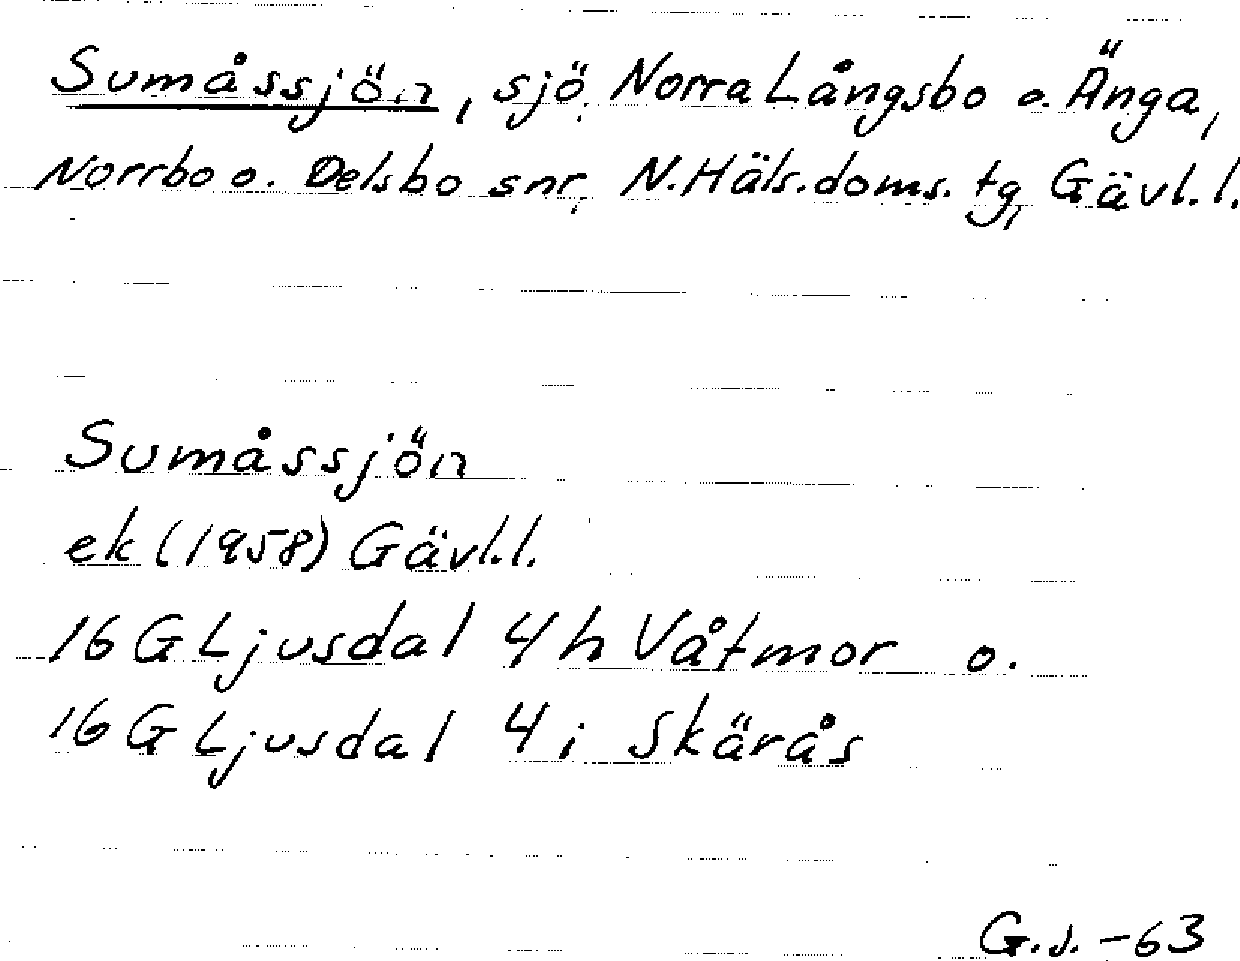 Sumåssjön, sjö, Norra Långsbo o. Änga,
Norrbo o. Delsbo snr, N. Häls. doms. tg, Gävl. l.
Sumåssjön
ek (1958) Gävl. l.
16 G Ljusdal 4 h Våtmor o.
16 G Ljusdal 4 i Skärås
G. s. -63